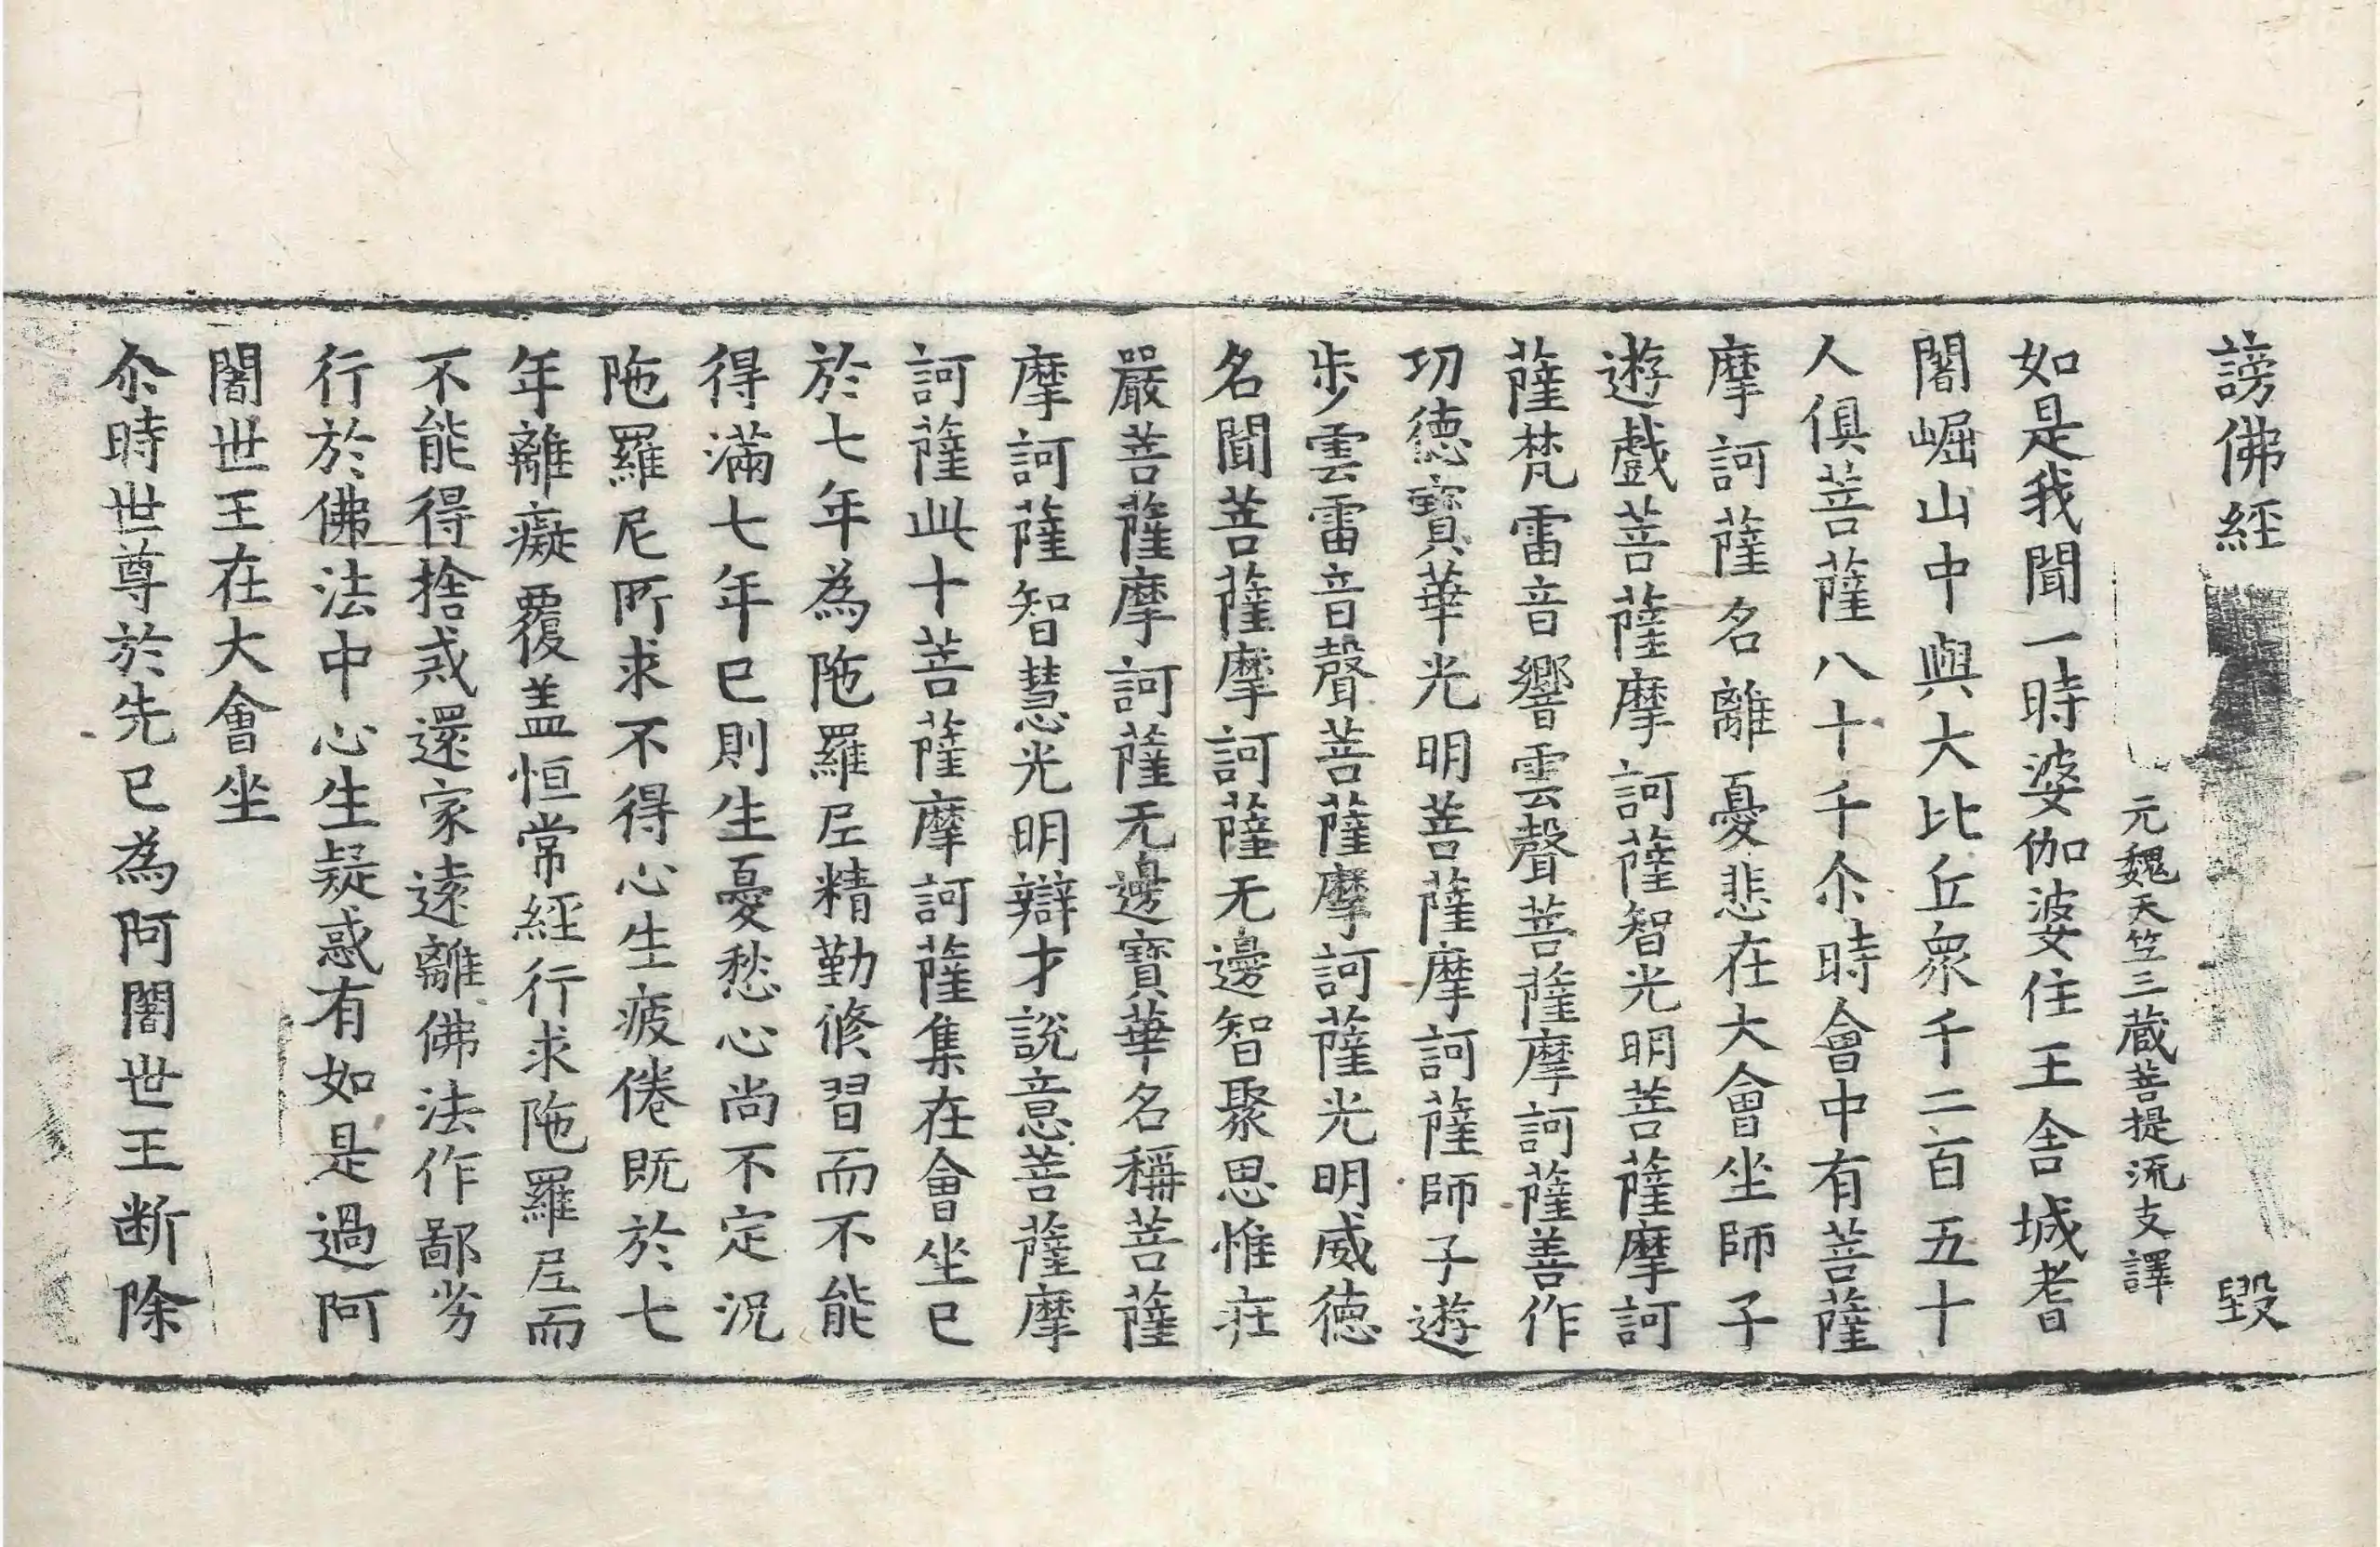 謗佛經 毀
元魏天竺三藏菩提流支譯
如是我聞一時婆伽婆住王舍城耆
闍崛山中與大比丘眾千二百五十
人俱菩薩八十千尒時會中有菩薩
摩訶薩名離憂悲在大會坐師子
遊戲菩薩摩訶薩智光明菩薩摩訶
薩梵雷音響雲聲菩薩摩訶薩善作
功德寶華光明菩薩摩訶薩師子遊
步雲雷音聲菩薩摩訶薩光明威德
名聞菩薩摩訶薩无邊智聚思惟莊
嚴菩薩摩訶薩无邊寶華名稱菩薩
摩訶薩智慧光明辯才說意菩薩摩
訶薩此十菩薩摩訶薩集在會坐已
於七年為陁羅尼精勤修習而不能
得滿七年已則生憂愁心尚不定況
陁羅尼所求不得心生疲倦既於七
年離癡覆盖恒常經行求陁羅尼而
不能得捨戒還家遠離佛法作鄙劣
行於佛法中心生疑惑有如是過阿
闍世王在大會坐
尒時世尊於先已為阿闍世王断除